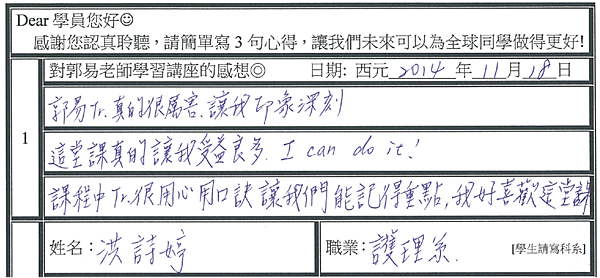 Dear 學員您好☺
感謝您認真聆聽，請簡單寫 3 句心得，讓我們未來可以為全球同學做得更好!
對郭易老師學習講座的感想◎ 日期: 西元 2014 年 11 月 18 日
郭易Tr.真的很厲害.讓我印象深刻
1
這堂課真的讓我受益良多. I can do it!
課程中Tr.很用心用口訣讓我們能記得重點,我好喜歡這堂課
姓名：洪詩婷 職業：護理系. [學生請寫科系]